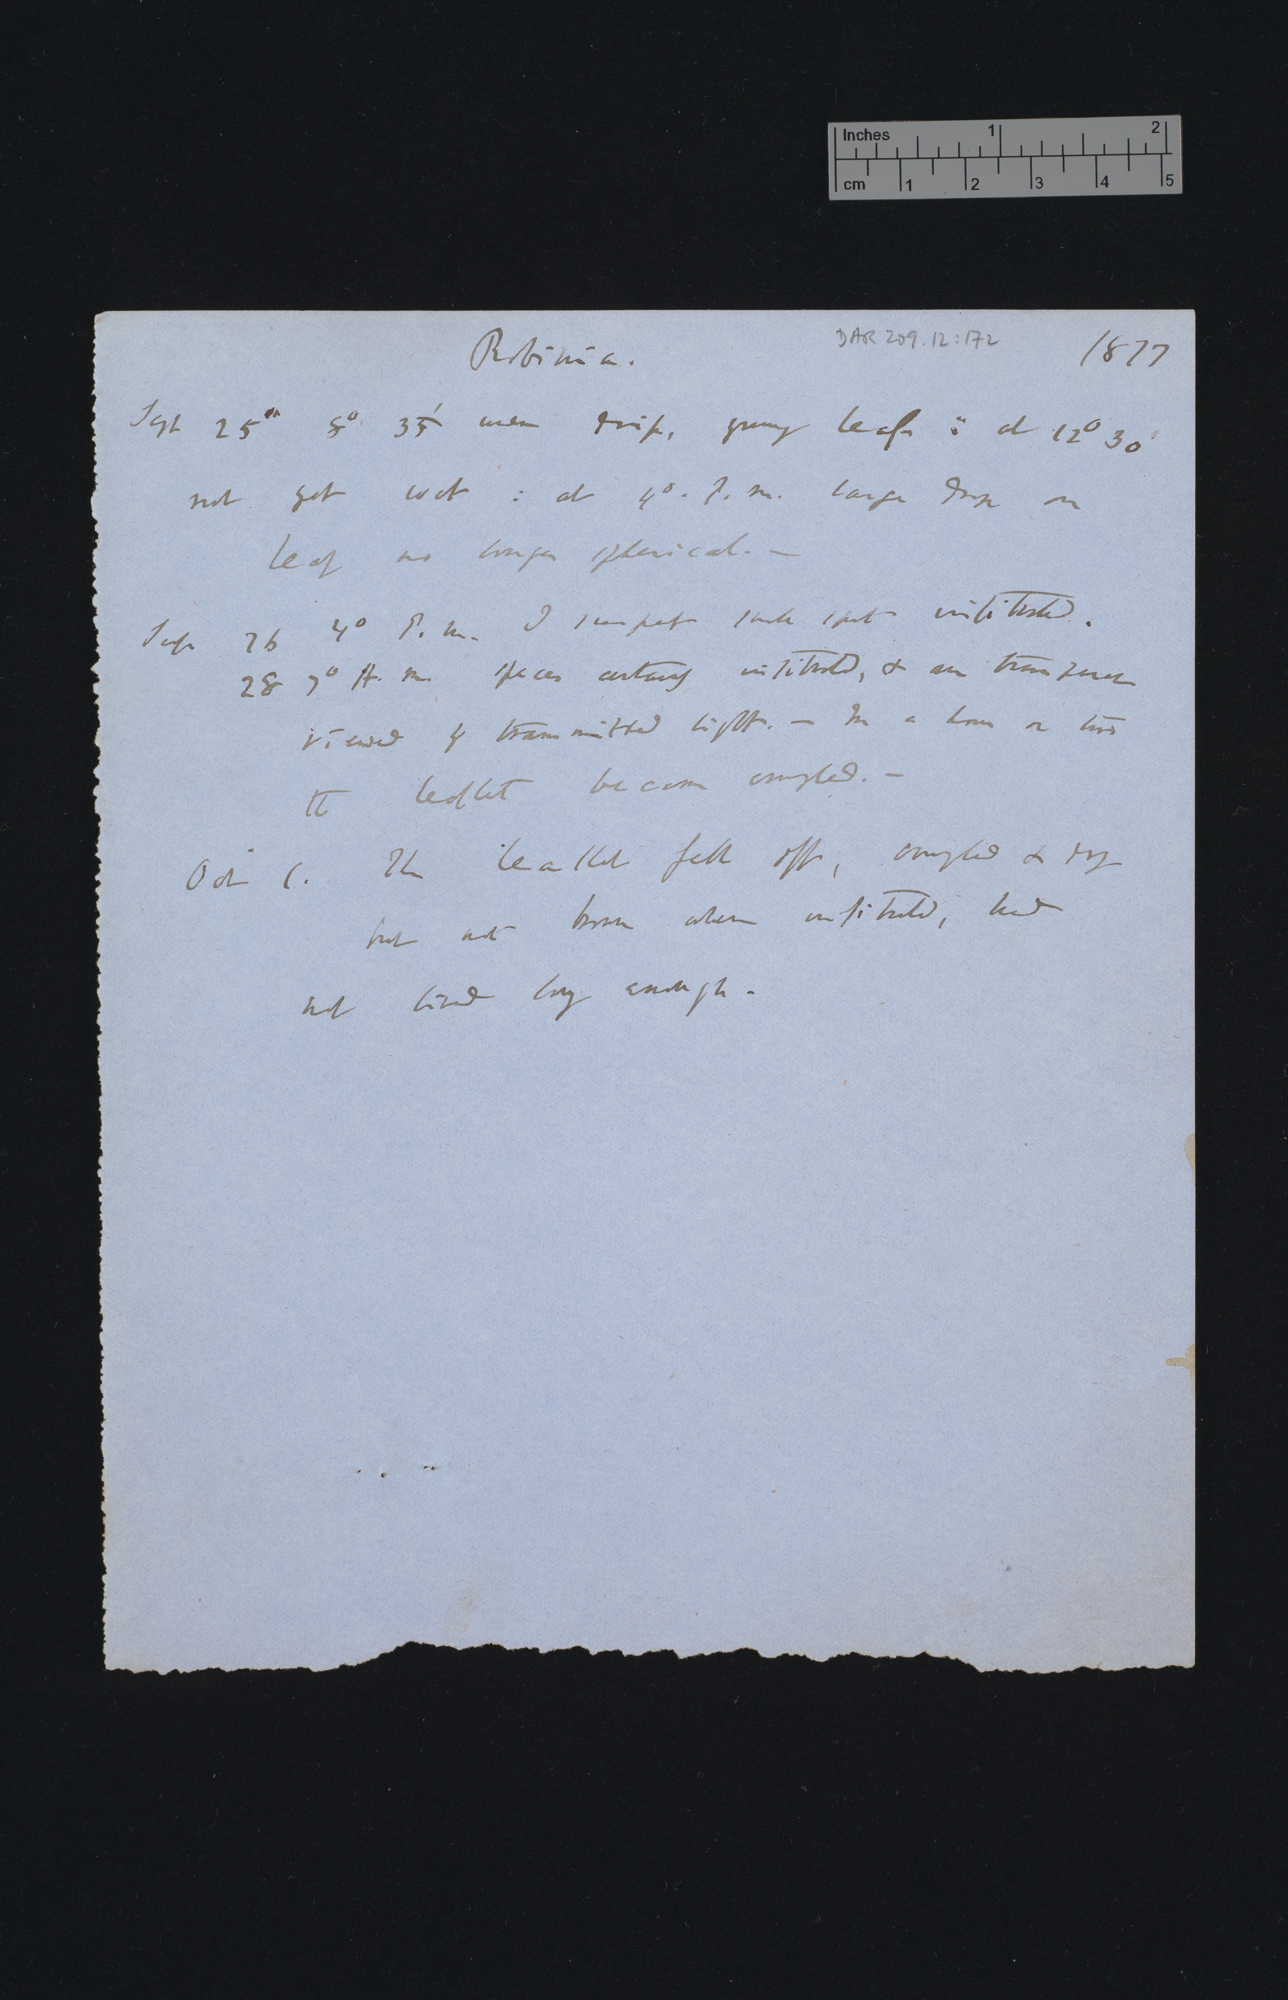 Inches 1 2
cm 1 2 3 4 5
Robinia. DAR 209.12:172 1877
Sept 25th 8° 35' drip, young leaf : at 12° 30'
not yet wet : at 4°. P.m. large drop on
leaf no longer spherical. —
Sept 26 4° P.m. I suspect such spots infiltrated.
28 7° A.m. spaces certainly infiltrated, & are transparent
viewed by transmitted light. — In a hour or two
the leaflet became crumpled. —
Oct 6. The leaflet fell off, crumpled & dry
but not brown where infiltrated, had
not lived long enough.